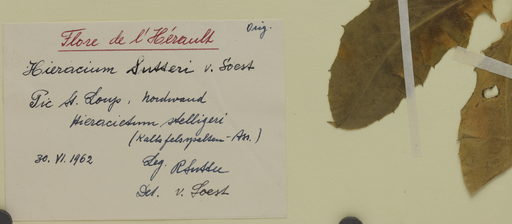 Orig.
Flore de l'Hérault
Hieracium Sutteri v. Soest
Pic St. Loup, Nordwand
Hieracietum stelligeri
(Kalkfelsspalten-Ass.)
30. VI. 1962 Leg. R Sutter
Det. v. Soest